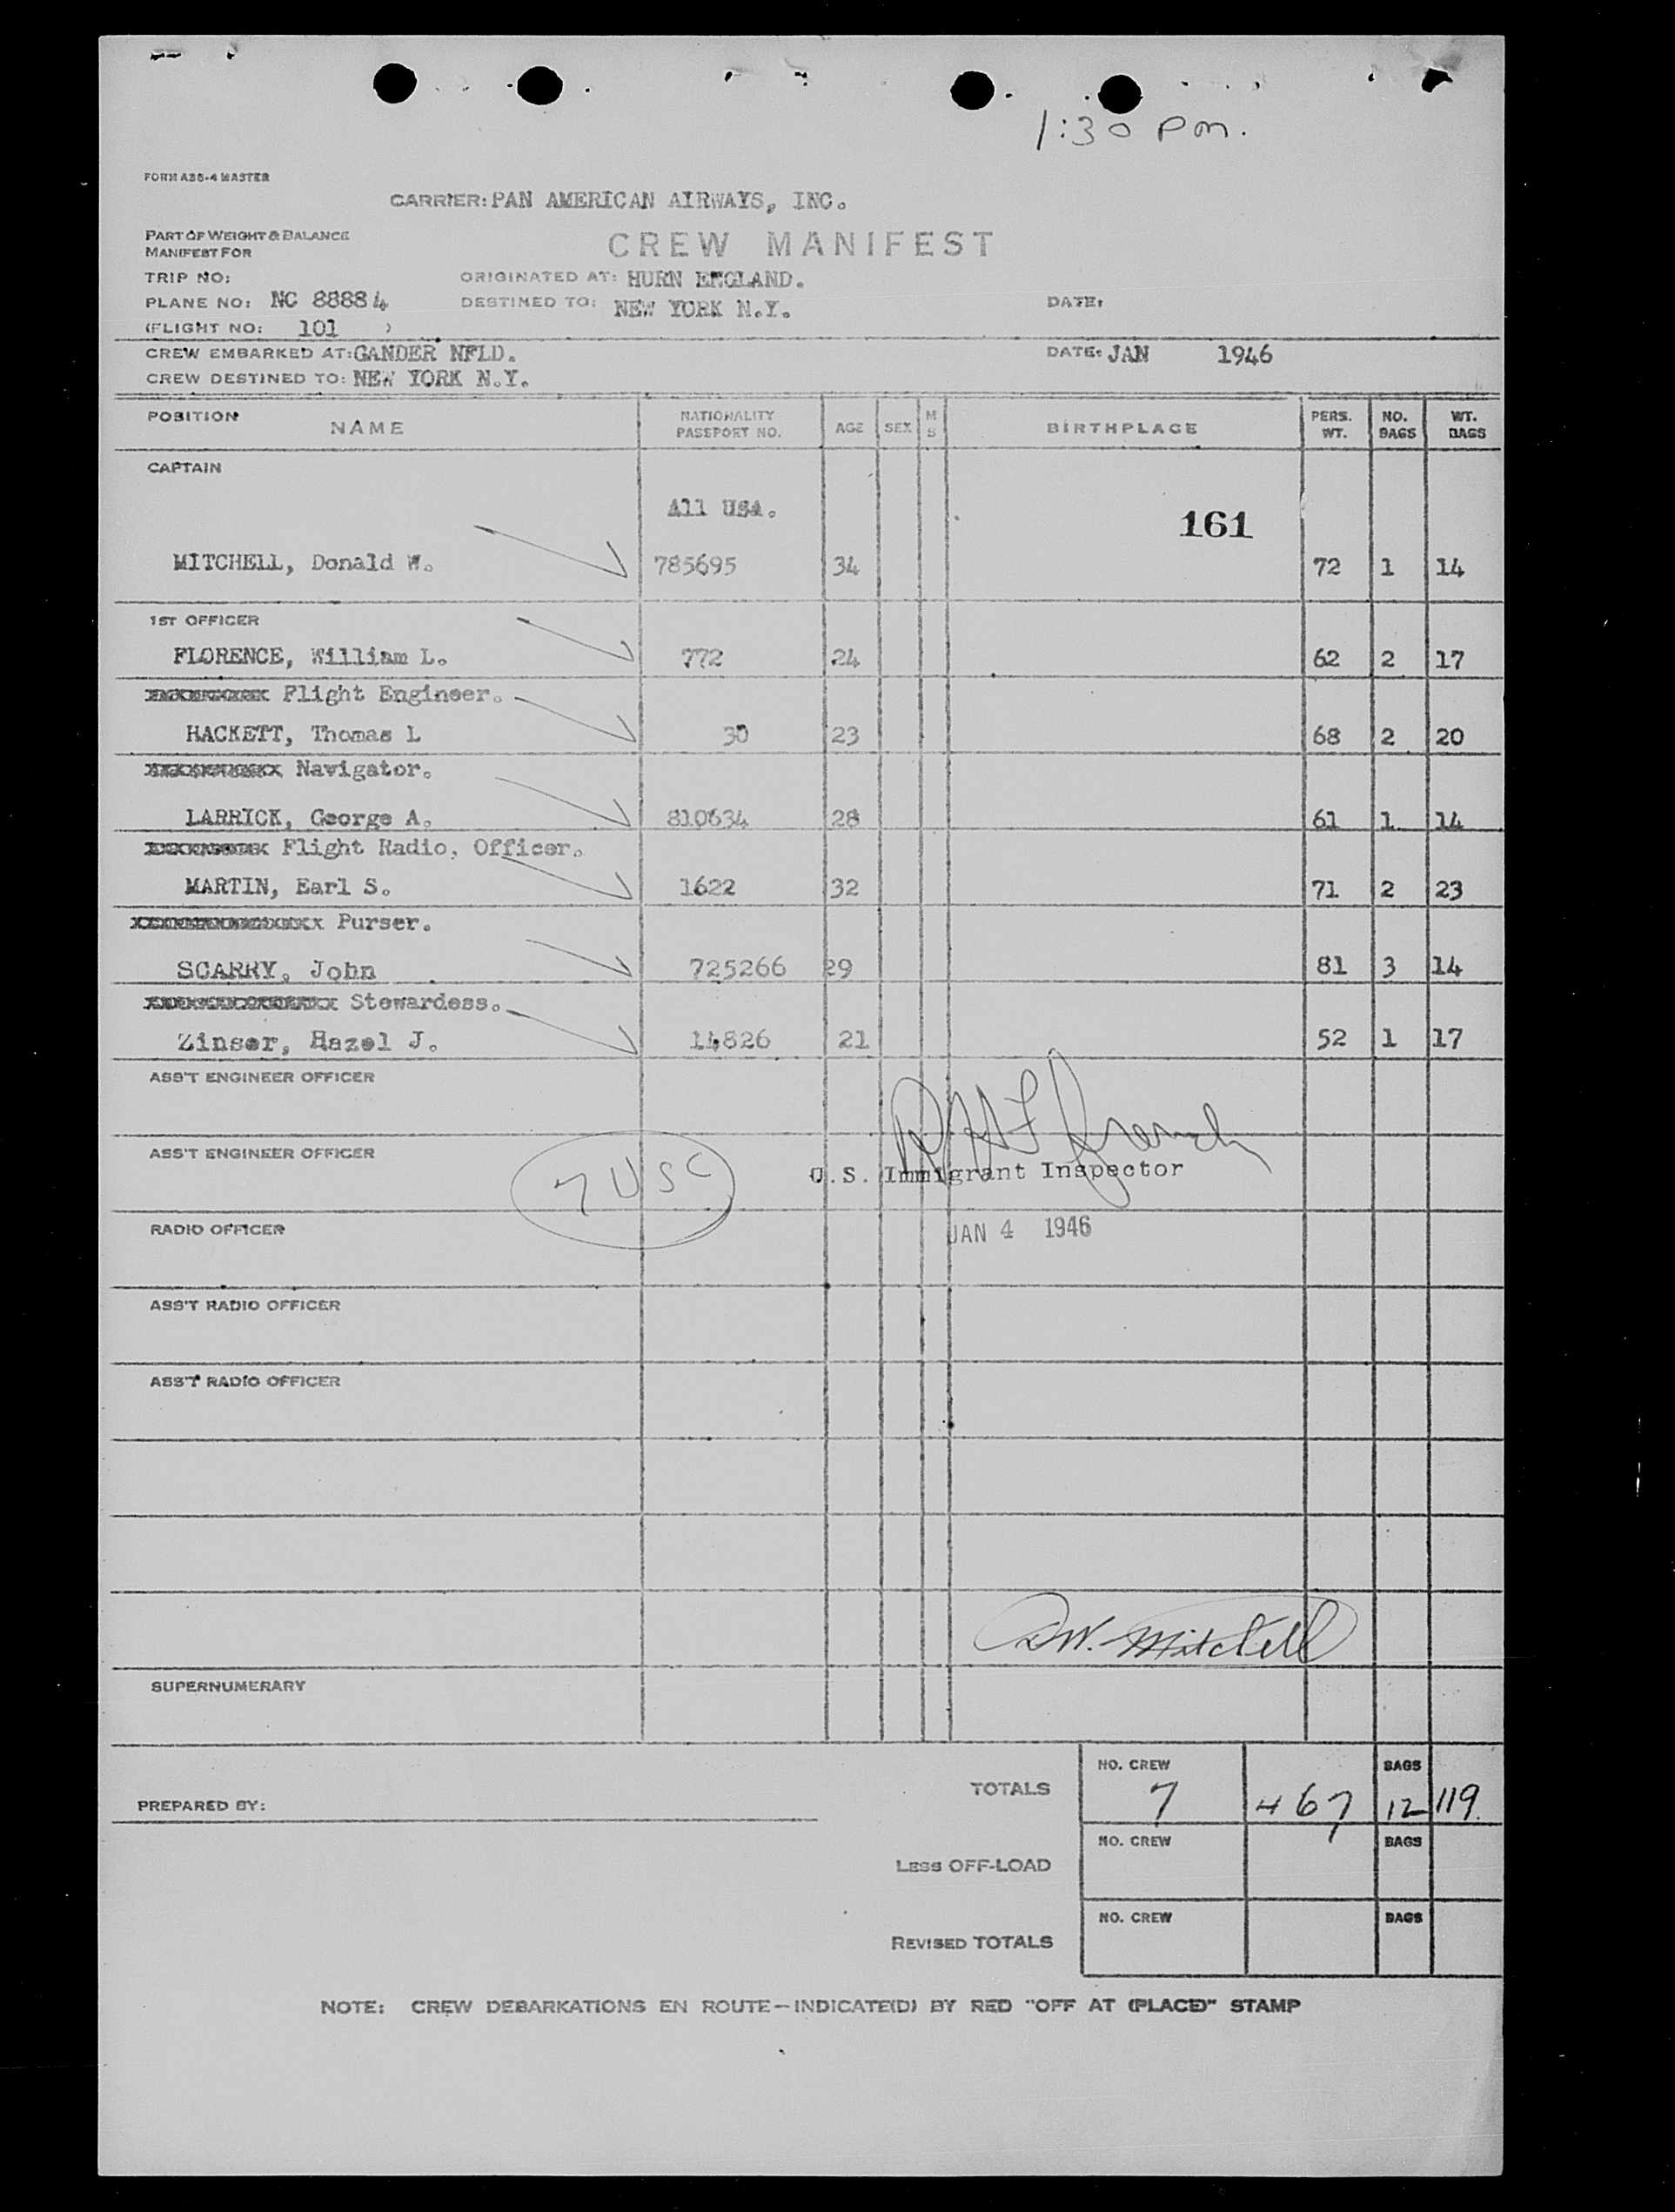 1:30 pm.
FORM ABS-4 MASTER
CARRIER: PAN AMERICAN AIRWAYS, INC.
PART OF WEIGHT & BALANCE
MANIFEST FOR
CREW MANIFEST
TRIP NO: ORIGINATED AT: HURN ENGLAND.
PLANE NO: NC 88884 DESTINED TO: NEW YORK N.Y. DATE:
(FLIGHT NO: 101 )
CREW EMBARKED AT: GANDER NFLD. DATE: JAN 1946
CREW DESTINED TO: NEW YORK N.Y.
POSITION NAME NATIONALITY PASSPORT NO. AGE SEX M S BIRTHPLACE PERS. WT. NO. BAGS WT. BAGS
CAPTAIN
All USA.
161
MITCHELL, Donald W. 785695 34 72 1 14
1ST OFFICER
FLORENCE, William L. 772 24 62 2 17
Flight Engineer.
HACKETT, Thomas L 30 23 68 2 20
Navigator.
LARRICK, George A. 810634 28 61 1 14
Flight Radio, Officer.
MARTIN, Earl S. 1622 32 71 2 23
Purser.
SCARRY, John 725266 29 81 3 14
Stewardess.
Zinser, Hazel J. 14826 21 52 1 17
ASS'T ENGINEER OFFICER
ASS'T ENGINEER OFFICER
7 USC
U.S. Immigrant Inspector
RADIO OFFICER
JAN 4 1946
ASS'T RADIO OFFICER
ASS'T RADIO OFFICER
DW. Mitchell
SUPERNUMERARY
PREPARED BY:
TOTALS NO. CREW 7 467 BAGS 12 119.
LESS OFF-LOAD NO. CREW BAGS
REVISED TOTALS NO. CREW BAGS
NOTE: CREW DEBARKATIONS EN ROUTE—INDICATE(D) BY RED "OFF AT (PLACE)" STAMP